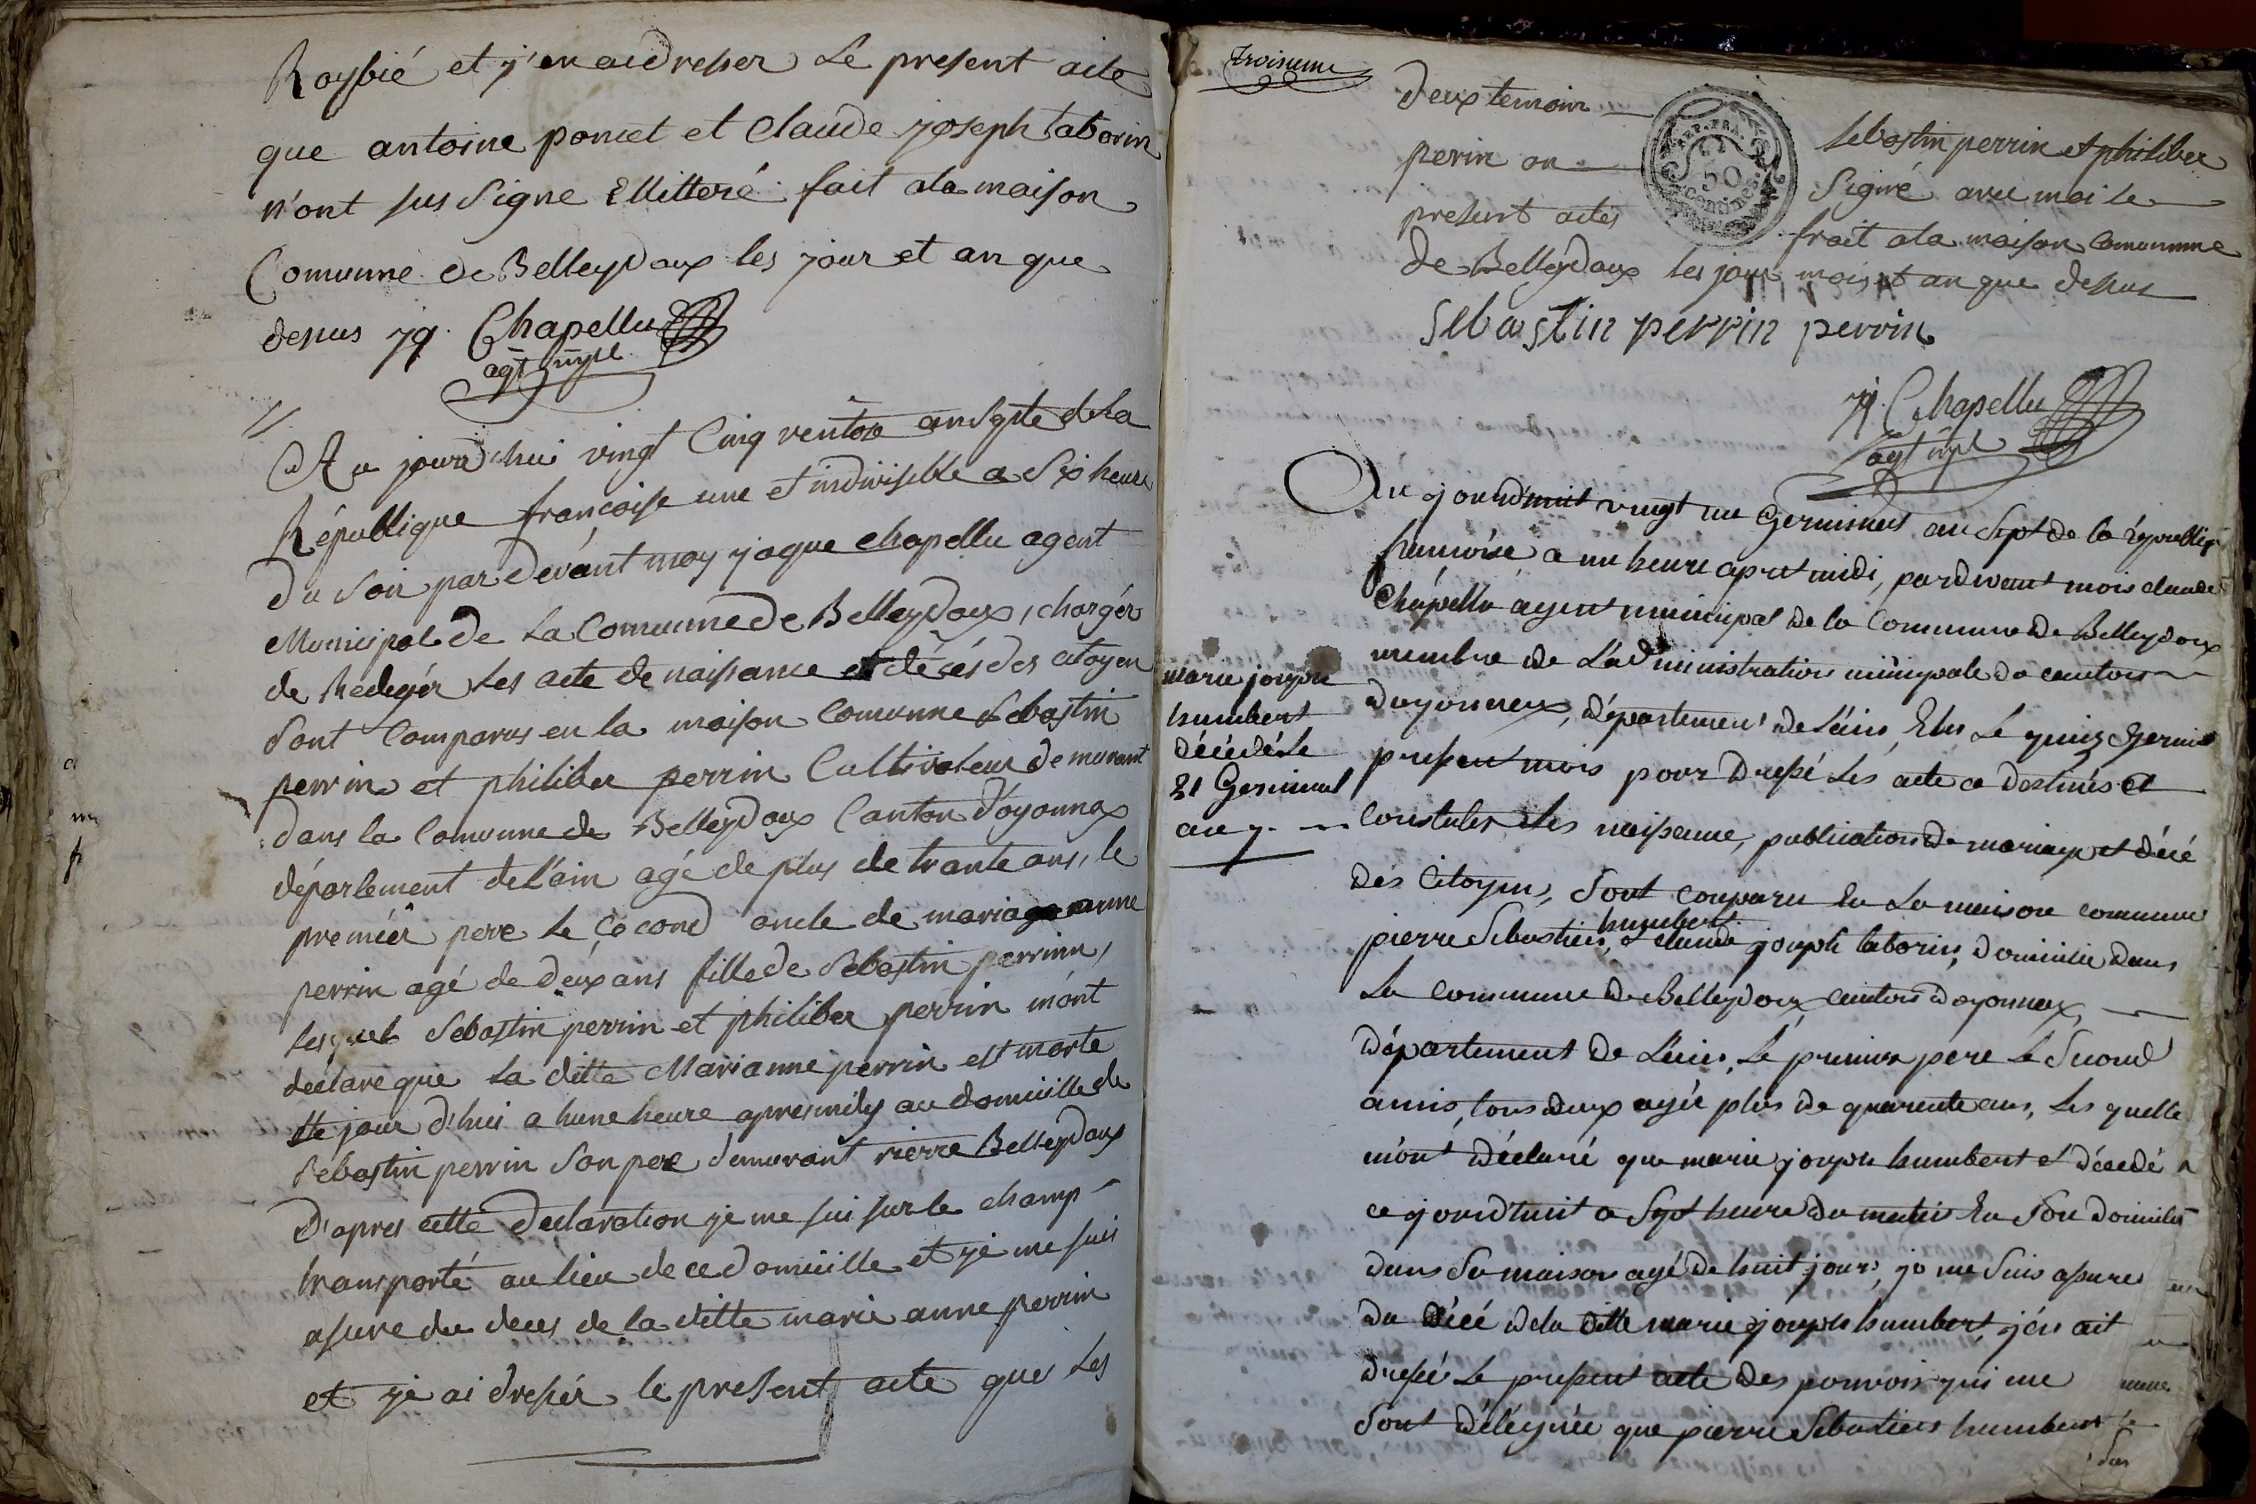 Roybié et j'en ai dresser Le present acte
que antoine poncet et Claude joseph taborin
n'ont sus Signe Ellitteré fait a la maison
Comunne de Belleydoux les jour et an que
desus jq. Chapellu
agt mpl
Au jourd'hui vingt Cinq ventose an Septe de La
République françoise une et indivisible a Six heure
du Soir par devant moy jaque Chapellu agent
Municipal de La Comunne de Belleydoux, chargér
de Rédigér Les acte de naissance et décés des citoyen
Sont Comparus en la maison Comunne Sebastin
perrin et philiber perrin Cultivateur demurant
dans la Comunne de Belleydoux Canton d'oyonnax
département de L'ain agé de plus de trante ans, le
premiér pere le Çecond oncle de mariaanne
perrin agé de deux ans fille de Sebastin perrin,
Lesquels Sebastin perrin et philiber perrin m'ont
declare que La ditte Marianne perrin est morte
Le jour d'hui a hune heure apresmidy au domicille de
Sebastin perrin Son pere demurant rierre Belleydoux
D'apres cette Declaration je me suis sur le champ
transporté au lieu de ce domicille et je me suis
asure du deces de la ditte marie anne perrin
et je ai dressér le present acte que Les
troisieme
deux temoin Sebastin perrin et philiber
REP. FRA.
50
Centimes.
perin on Signé avec moi le
present actes frait a la maison Comunnne
de Belleydoux les jour mois et an que desus
Sebastin perrin perrin
jq. Chapellu
agt mpl
Au jourd'huit vingt un Germinal an Sept de la républiq
françoise a une heure apret midi, pardevant mois claude
Chapellu agent municipal de la Commune de Belleydoux
membre de L'administration municipale du canton
doyonnax, département de L'ain, Elus Le quinz Germinal
present mois pour Dressé Les acte a destinés et
Constater Les naissance, publication de mariage et décé
des Citoyens, Sont comparu En La maison commune
humbert
pierre Sebastien, & claude joseph taborin, Domicilié dans
La commune de Belleydoux canton doyonnax,
département de L'ain, Le premier pere Le Second
amis, tous deux agé plus de quarente ans, Les quelle
m'ont déclaré que marie joseph humbert est décedé
ce jourd'huit a Sept heure du matin En Son domicile
dans Sa maison agé de huit jours, je me Suis assuré
du décé de la ditte marie joseph humbert, jén ait
dressé Le present acte des pouvoir qui me
Sont déléguée que pierre Sebastien humbert
marie joseph
humbert
décédé le
21 Germinal
an 7.